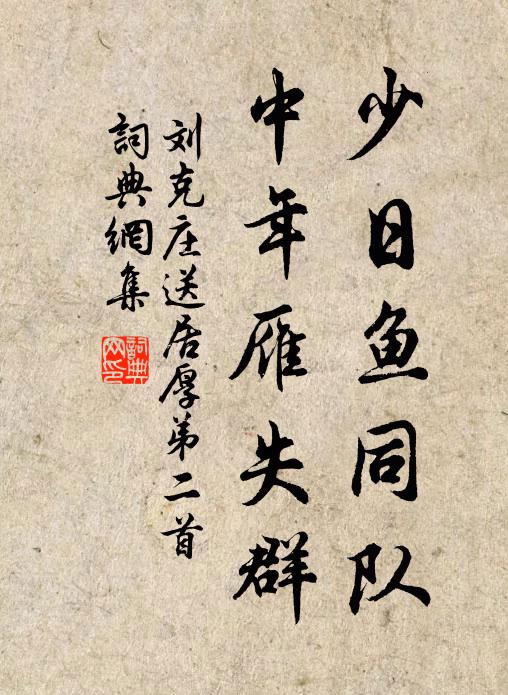 少日鱼同队
中年雁失群
刘克庄送居厚第二首
詞典網集
詞典网印